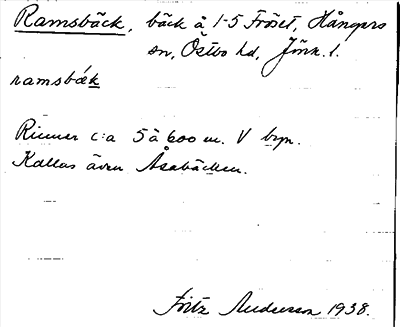 Ramsbäck, bäck å 1-5 Fröset, Hångers
sn, Östbo hd, Jönk. l.
ramsbæk
Rinner c:a 5 à 600 m. V byn.
Kallas även Åsabäcken.
Fritz Anderson 1938.